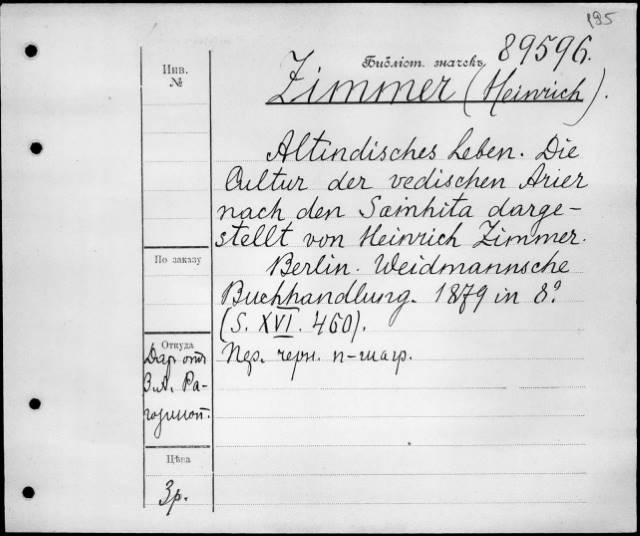 195
Библіот. значекъ 89596.
Инв.
№
Zimmer (Heinrich).
Altindisches Leben. Die
Cultur der vedischen Arier
nach den Samhita darge-
stellt von Heinrich Zimmer.
По заказу
Berlin. Weidmannsche
Buchhandlung. 1879 in 8º
(S. XVI. 460).
Откуда
Даръ отъ
З. А. Ра-
гозиной.
Пер. черн. п-шагр.
Цѣна
3р.